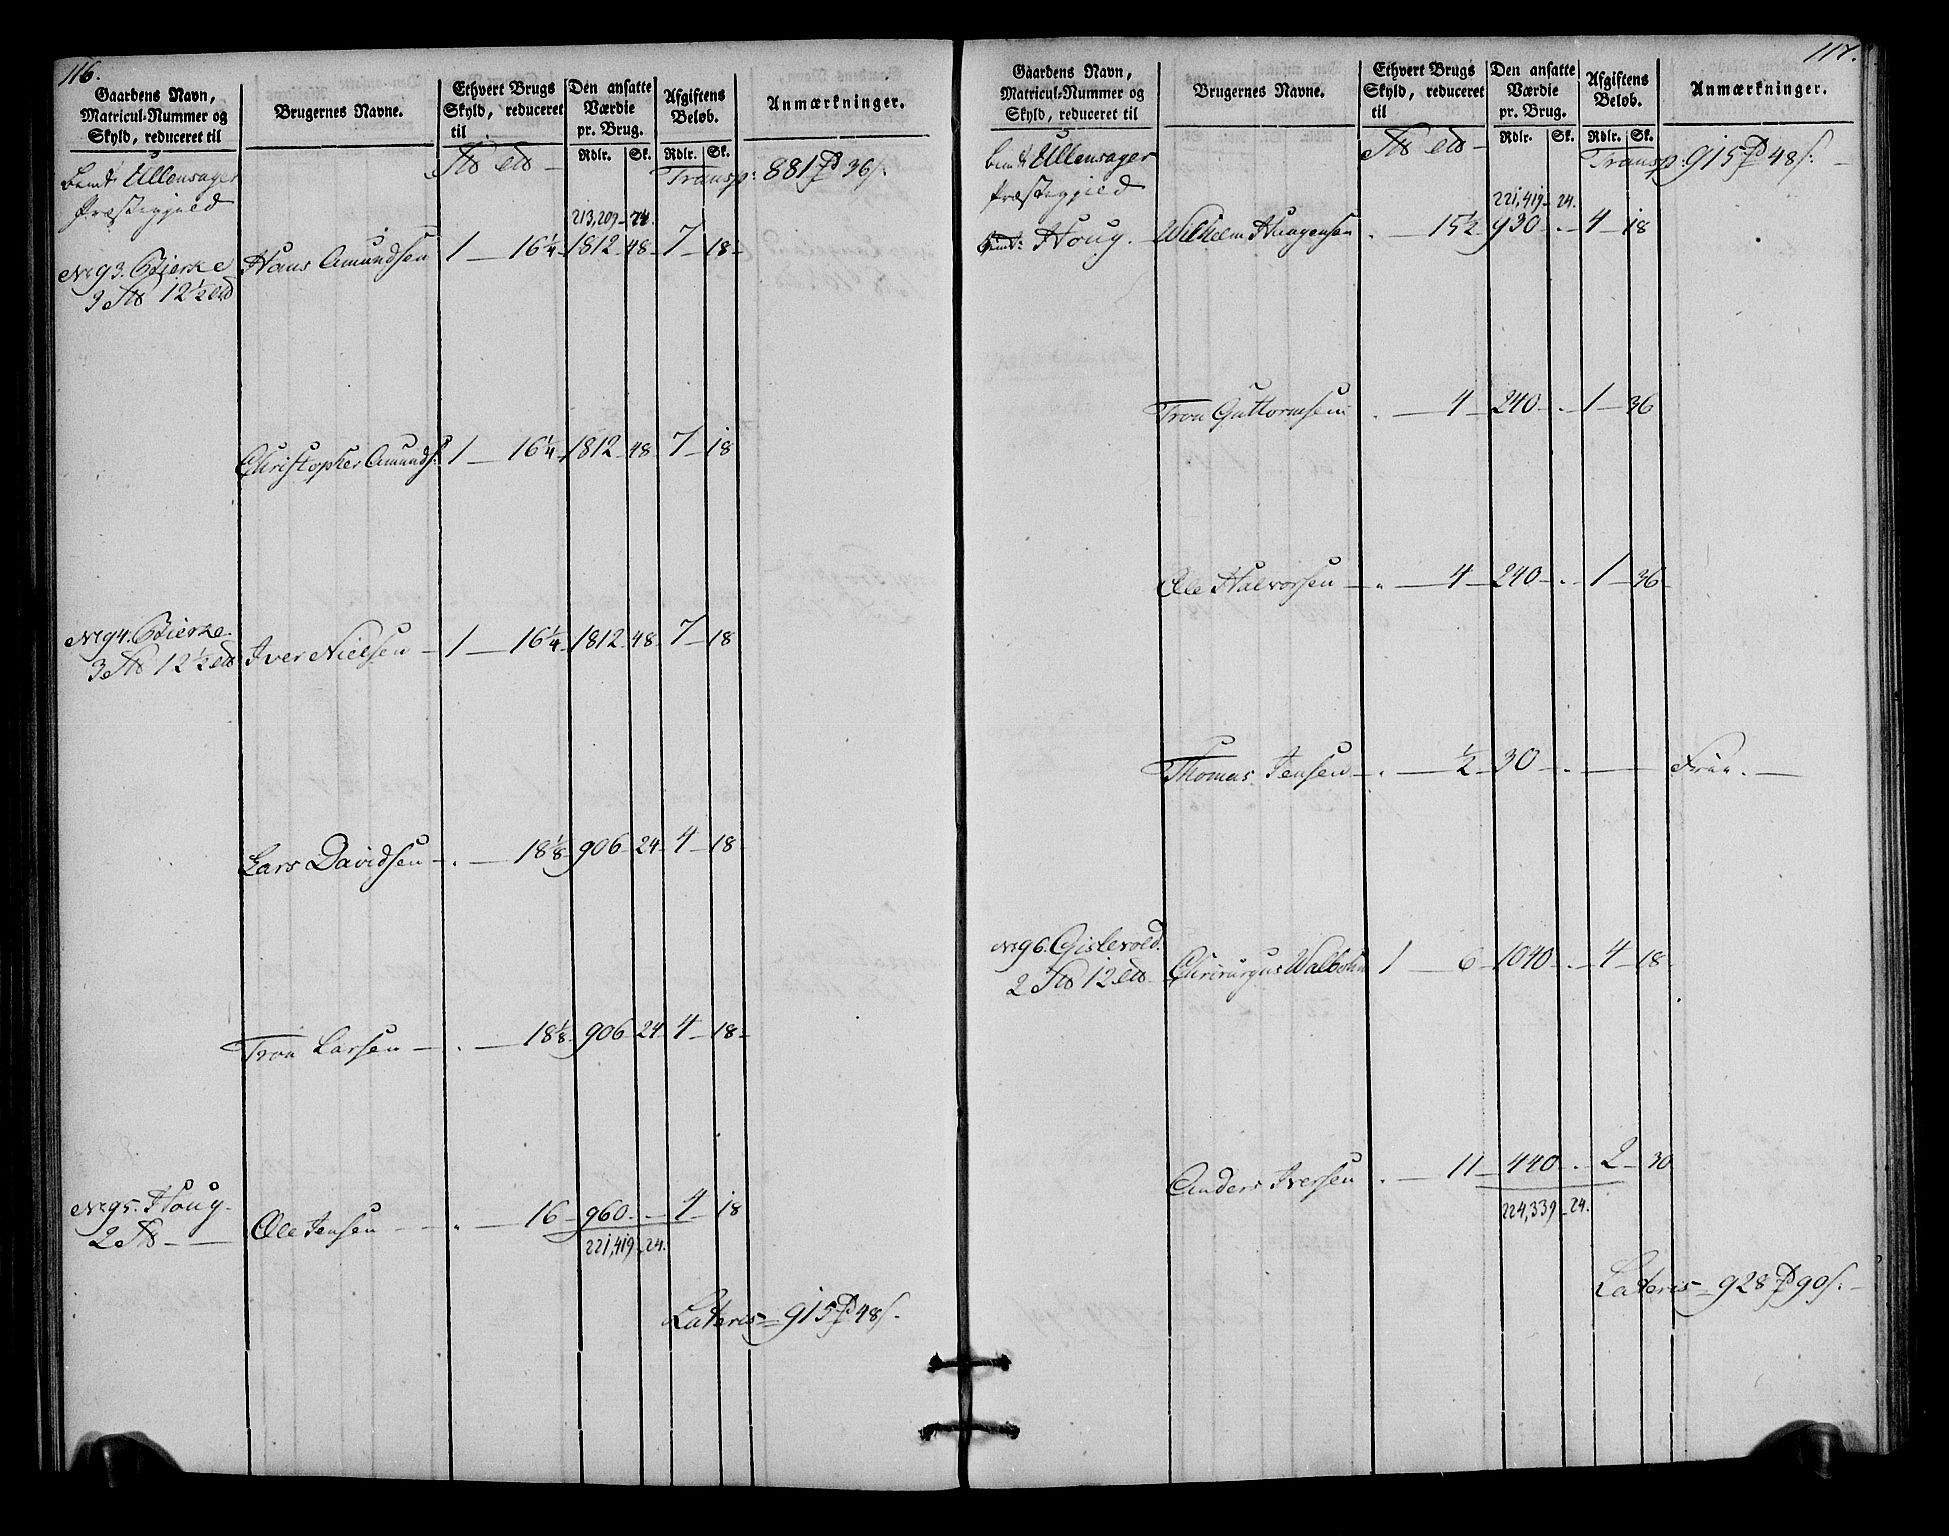 116.
Gaardens Navn,
Matricul-Nummer og
Skyld, reduceret til
Brugernes Navne.
Ethvert Brugs
Skyld, reduceret
til
Den ansatte
Værdie
pr. Brug.
Rdlr. Sk.
Afgiftens
Beløb.
Rdlr. Sk.
Anmærkninger.
Ullensager
Præstegjeld
Transp: 881 36 s.
213,209 - 24.
No 93. Bierke Hans Amundsen 1 16¼ 1812 48 7 18
3 12½
Christopher Amunds: 1 16¼ 1812 48 7 18
No 94. Bierke
3 12½ Iver Nielsen 1 16¼ 1812 48 7 18
Lars Davidsen - 18⅛ 906 24 4 18
Tron Larsen - 18⅛ 906 24 4 18
No 95. Houg
2 Ole Jensen - 16 960 - 4 18
221,419 - 24.
Lateris 915 48 s.
117.
Gaardens Navn,
Matricul-Nummer og
Skyld, reduceret til
Brugernes Navne.
Ethvert Brugs
Skyld, reduceret
til
Den ansatte
Værdie
pr. Brug.
Rdlr. Sk.
Afgiftens
Beløb.
Rdlr. Sk.
Anmærkninger.
Ullensager
Præstegjeld
Transp: 915 48 s:
221,419 - 24.
Houg. Wilhelm 15½ 930 - 4 18
Tron Guttormsen - 4 240 - 1 36
Ole Halvorsen - 4 240 - 1 36
Thomas Jensen - ½ 30 - Frie.
No 96. Gislevold.
2 12 Chirurgus Walbohm 1 6 1040 - 4 18
Anders Iversen - 11 440 - 2 30
224,339 - 24.
Lateris 928 90 s: